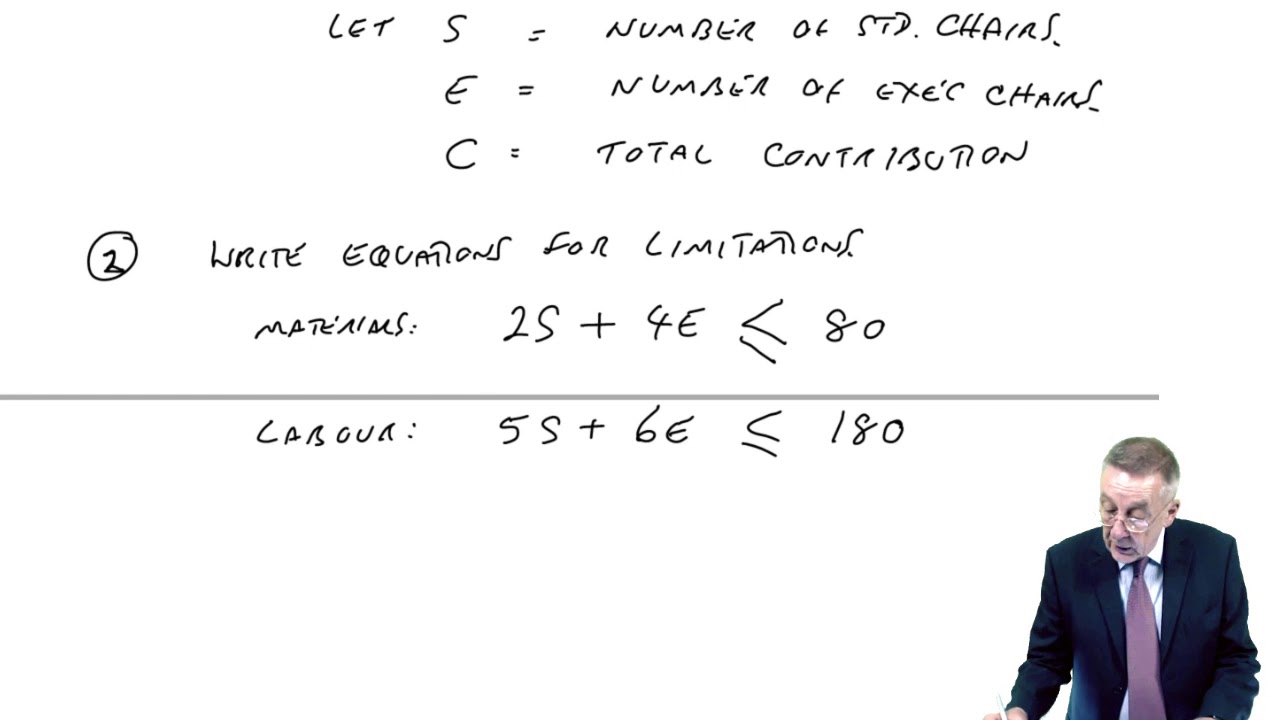 LET S = NUMBER OF STD. CHAIRS.
E = NUMBER OF EXEC CHAIRS.
C = TOTAL CONTRIBUTION
2 WRITE EQUATIONS FOR LIMITATIONS.
MATERIALS: 2S + 4E ≤ 80
LABOUR: 5S + 6E ≤ 180